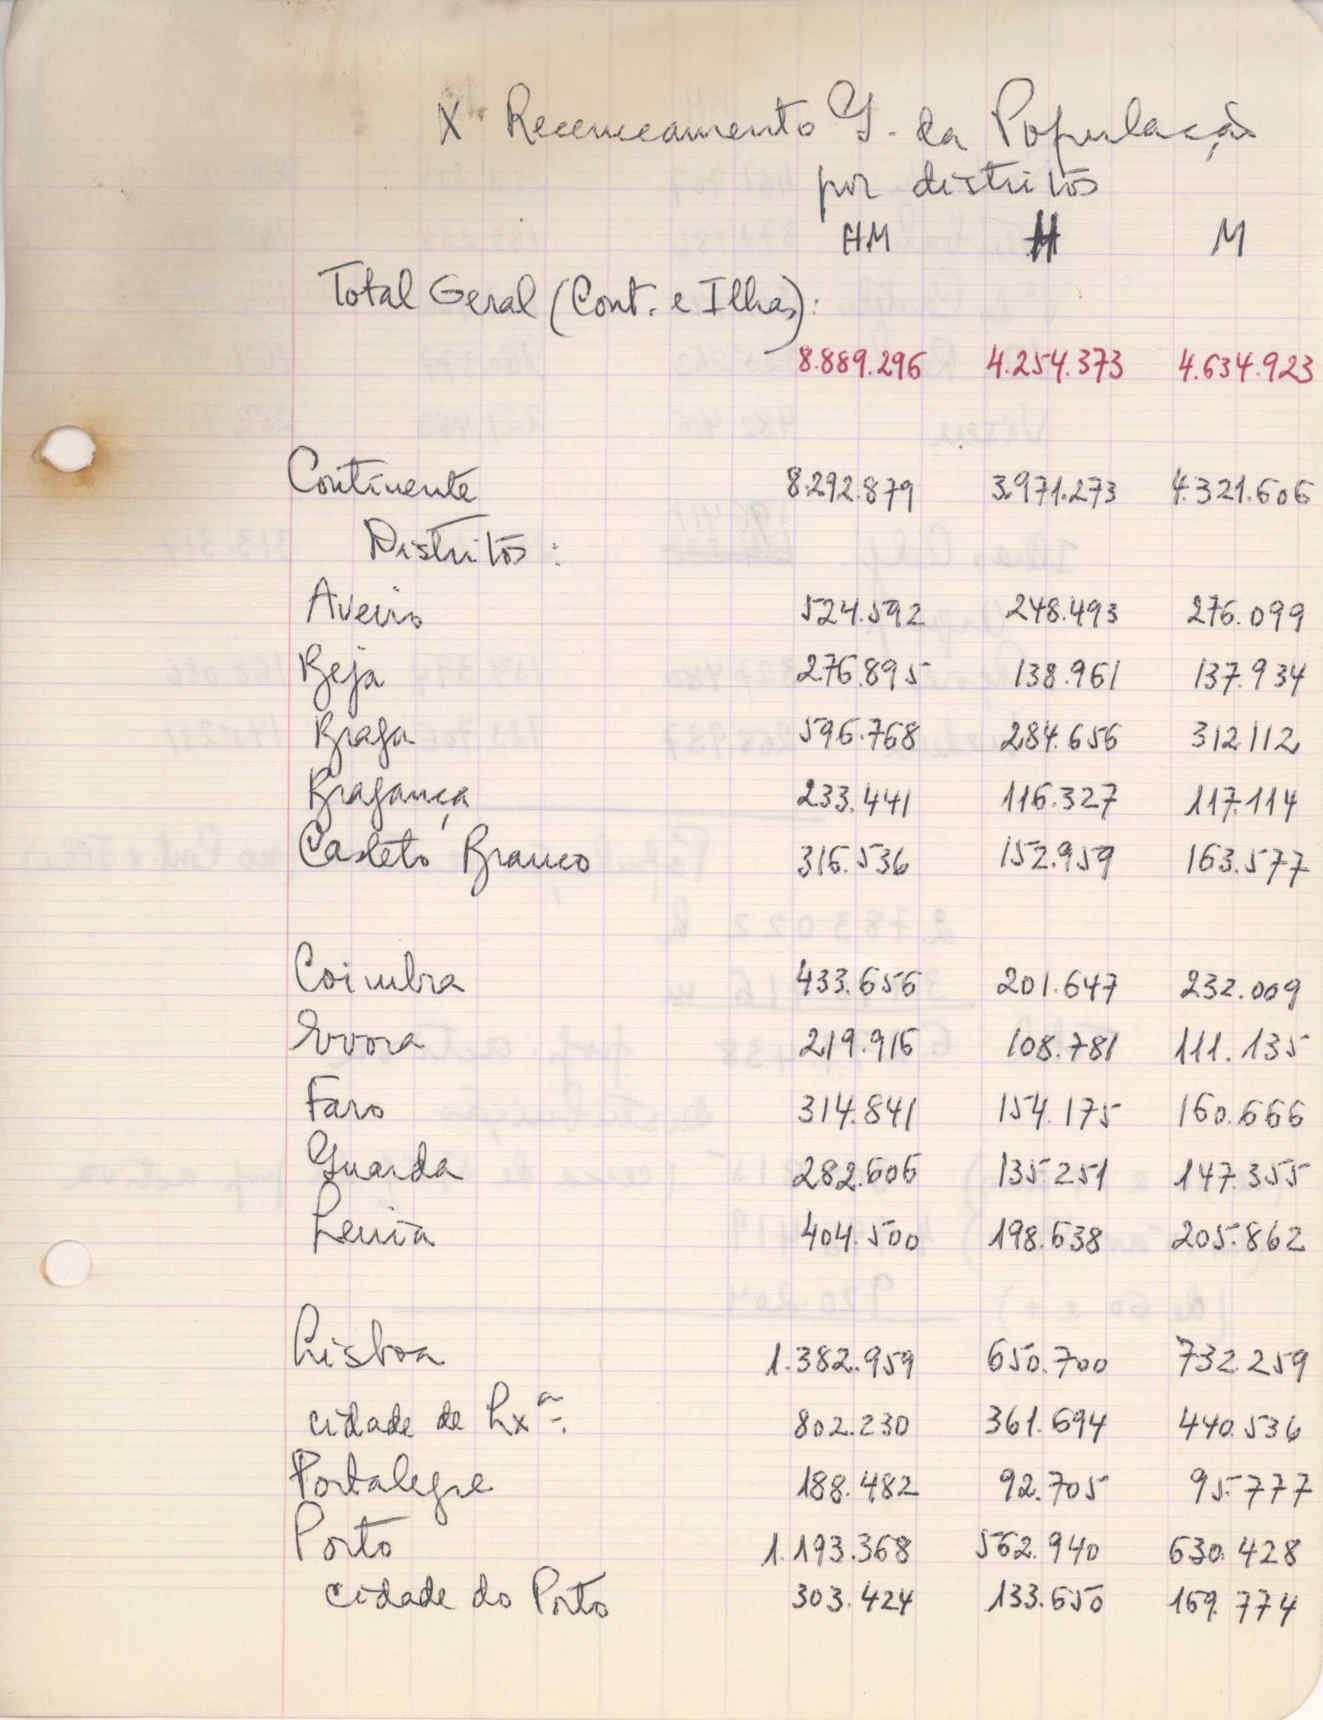 X Recenceamento G. da População
por distritos
HM H M
Total Geral (Cont. e Ilhas):
8.889.296 4.254.373 4.634.923
Continente 8.292.879 3.971.273 4.321.606
Distritos:
Aveiro 524.592 248.493 276.099
Beja 276.895 138.961 137.934
Braga 596.768 284.656 312.112
Bragança 233.441 116.327 117.114
Castelo Branco 316.536 152.959 163.577
Coimbra 433.656 201.647 232.009
Evora 219.916 108.781 111.135
Faro 314.841 154.175 160.666
Guarda 282.606 135.251 147.355
Leiria 404.500 198.638 205.862
Lisboa 1.382.959 650.700 732.259
cidade de Lxª: 802.230 361.694 440.536
Portalegre 188.482 92.705 95.777
Porto 1.193.368 562.940 630.428
cidade do Porto 303.424 133.650 169.774